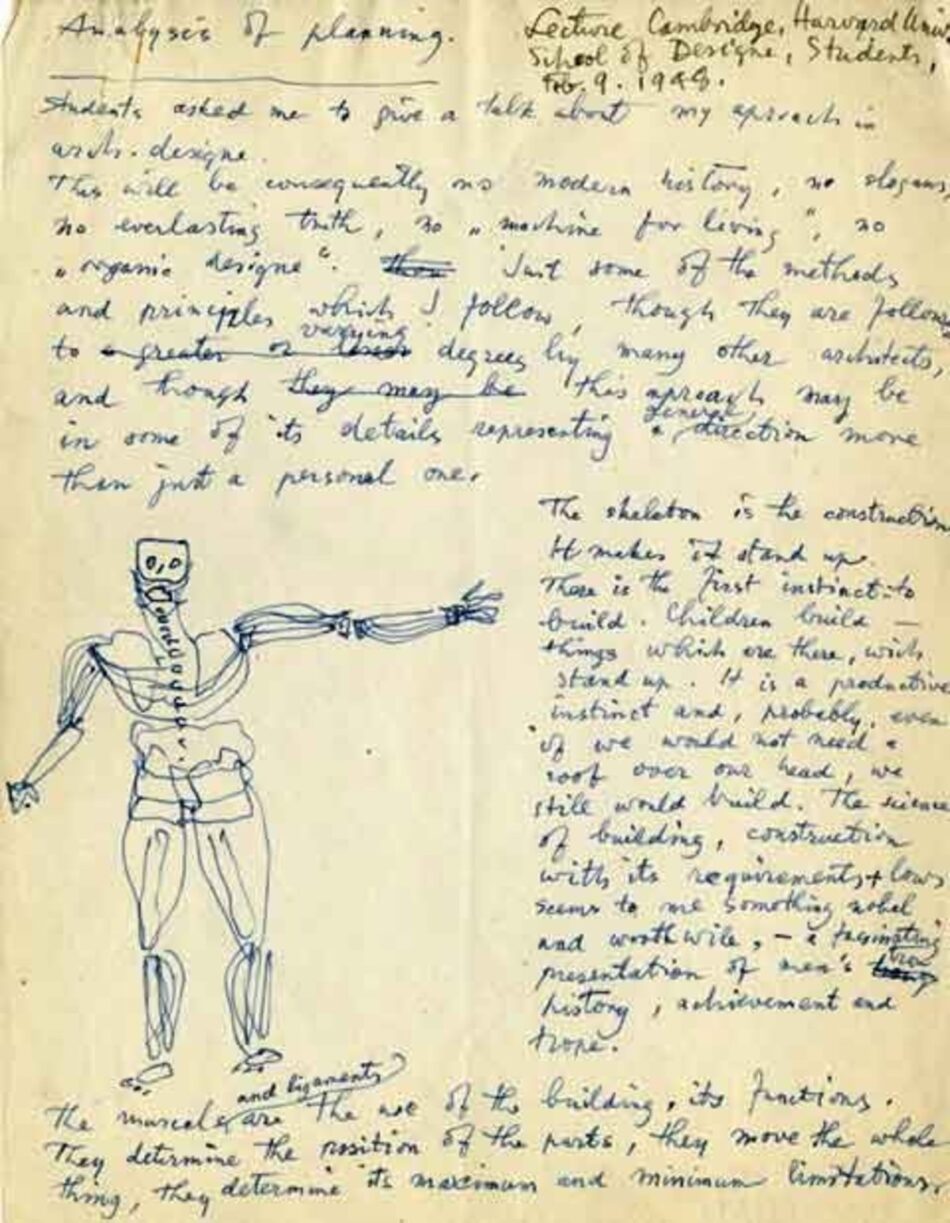 Analysis of planning.
Lecture Cambridge, Harvard Univ.
School of Designe, Students,
Feb. 9. 1948.
Students asked me to give a talk about my aproach in
arch. designe.
This will be consequently no modern history, no slogans,
no everlasting truth, no „machine for living", no
„organic designe". Just some of the methods
and principles which I follow, though they are followed
varying
to a greater or lesser degrees by many other architects,
and though they may be this aproach may be
general
in some of its details representing a direction more
than just a personal one.
The skeleton is the construction
It makes it stand up.
There is the first instinct to
build. Children build —
things which are there, wich
stand up. It is a productive
instinct and, probably, even
if we would not need a
roof over our head, we
still would build. The science
of building, construction
with its requirements + laws
seems to me something nobel
and worthwile, – a fascinating
true
presentation of men's
history, achievement and
hope.
and ligaments
The muscles are the use of the building, its functions.
They determine the position of the parts, they move the whole
thing, they determine its maximum and minimum limitations.